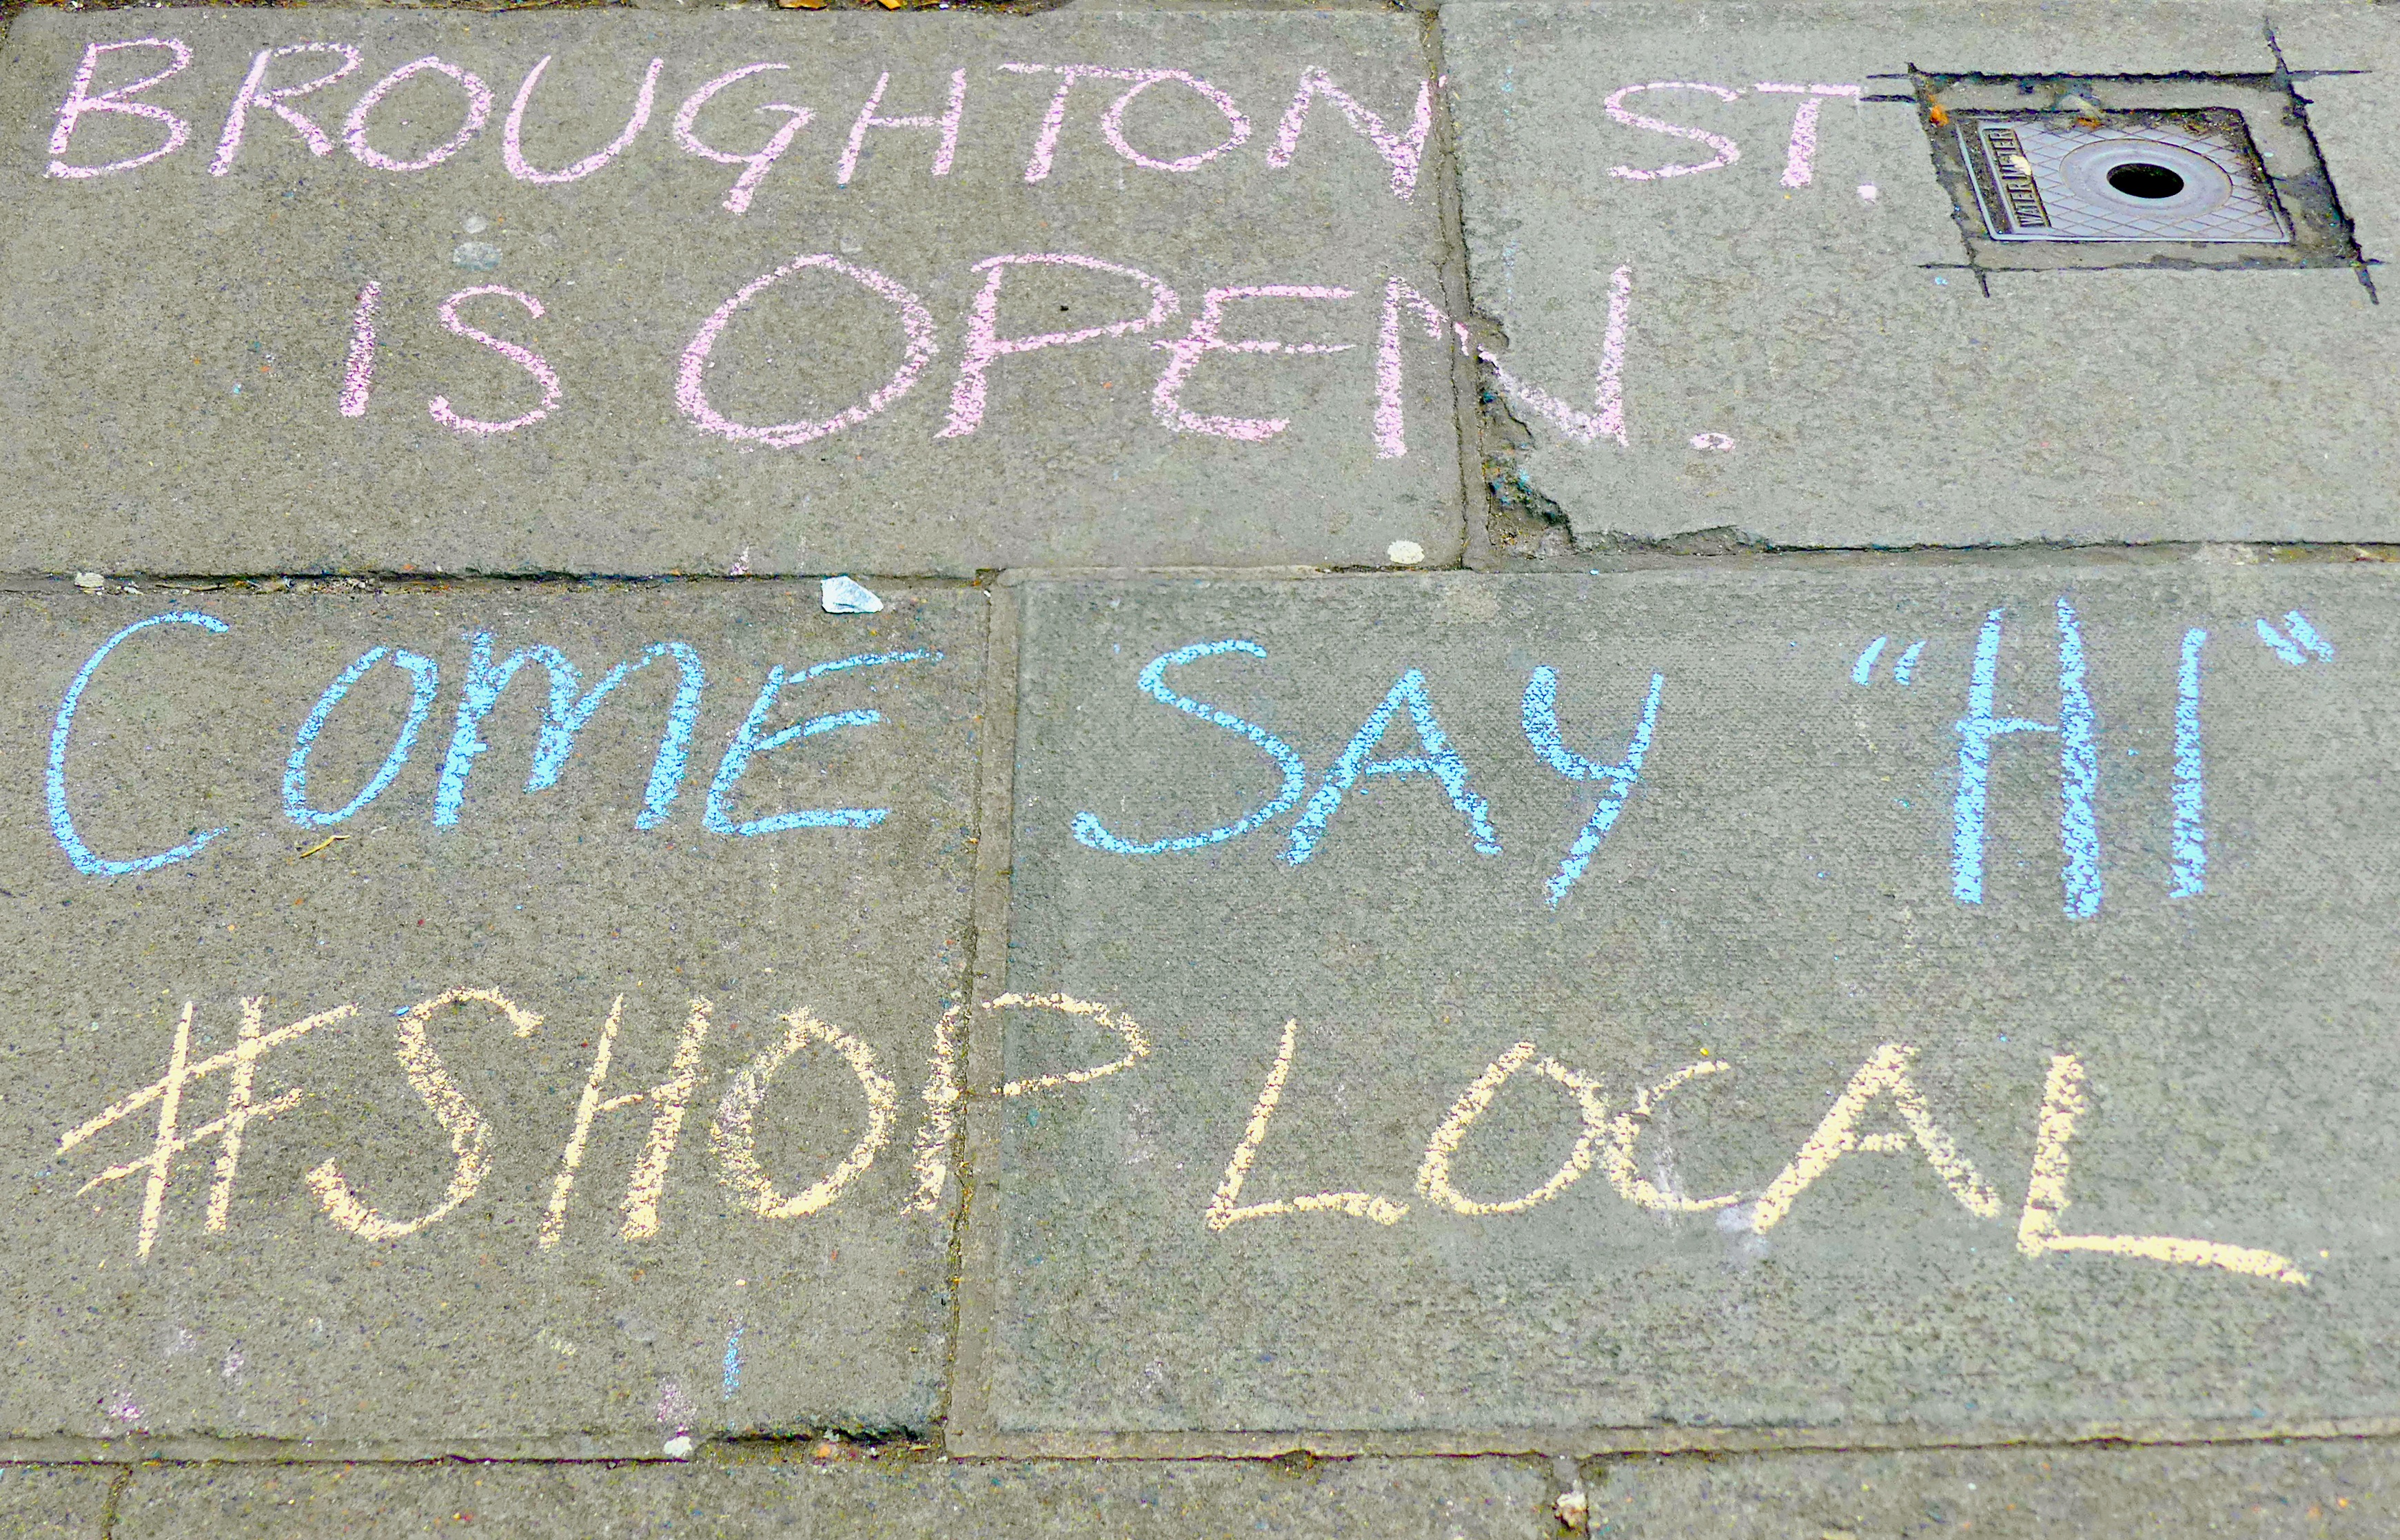 BROUGHTON ST.
WATER METER
IS OPEN.
COME SAY "HI"
#SHOP LOCAL